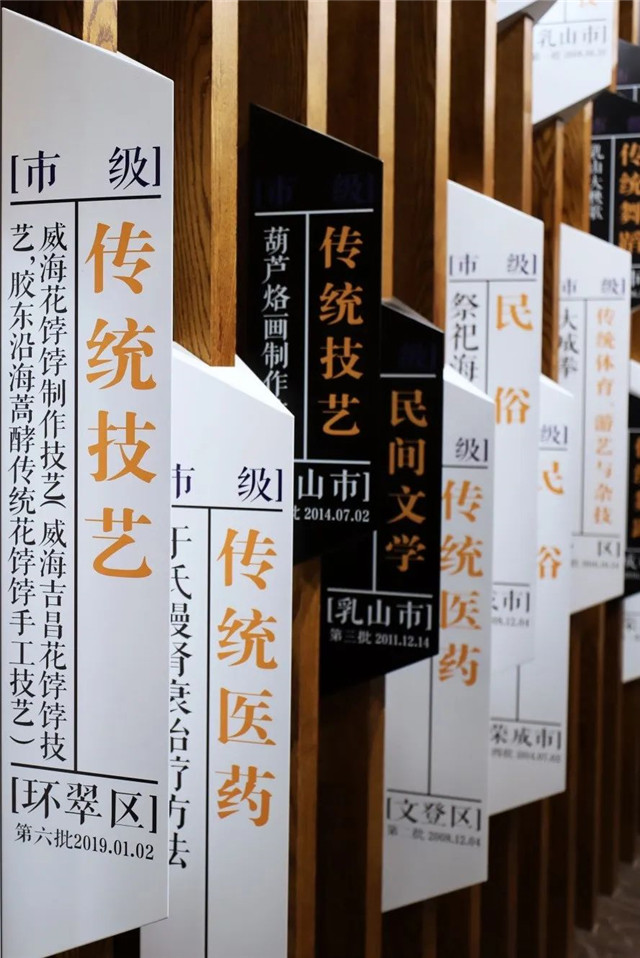 [市 级]
传统技艺
威海花饽饽制作技艺(威海吉昌花饽饽技
艺,胶东沿海蒿酵传统花饽饽手工技艺)
[环翠区]
第六批2019.01.02
级]
传统医药
氏慢肾衰治疗方法
[市 级]
传统技艺
葫芦烙画制作
山市]
2014.07.02
民间文学
[乳山市]
第三批 2011.12.14
级]
传统医药
[文登区]
第二批 2008.12.04
[市 级]
民俗
祭祀海
市]
级]
民俗
荣成市]
2014.07.02
[市 级]
传统体育、游艺与杂技
大成拳
区]
乳山市]
传统舞蹈